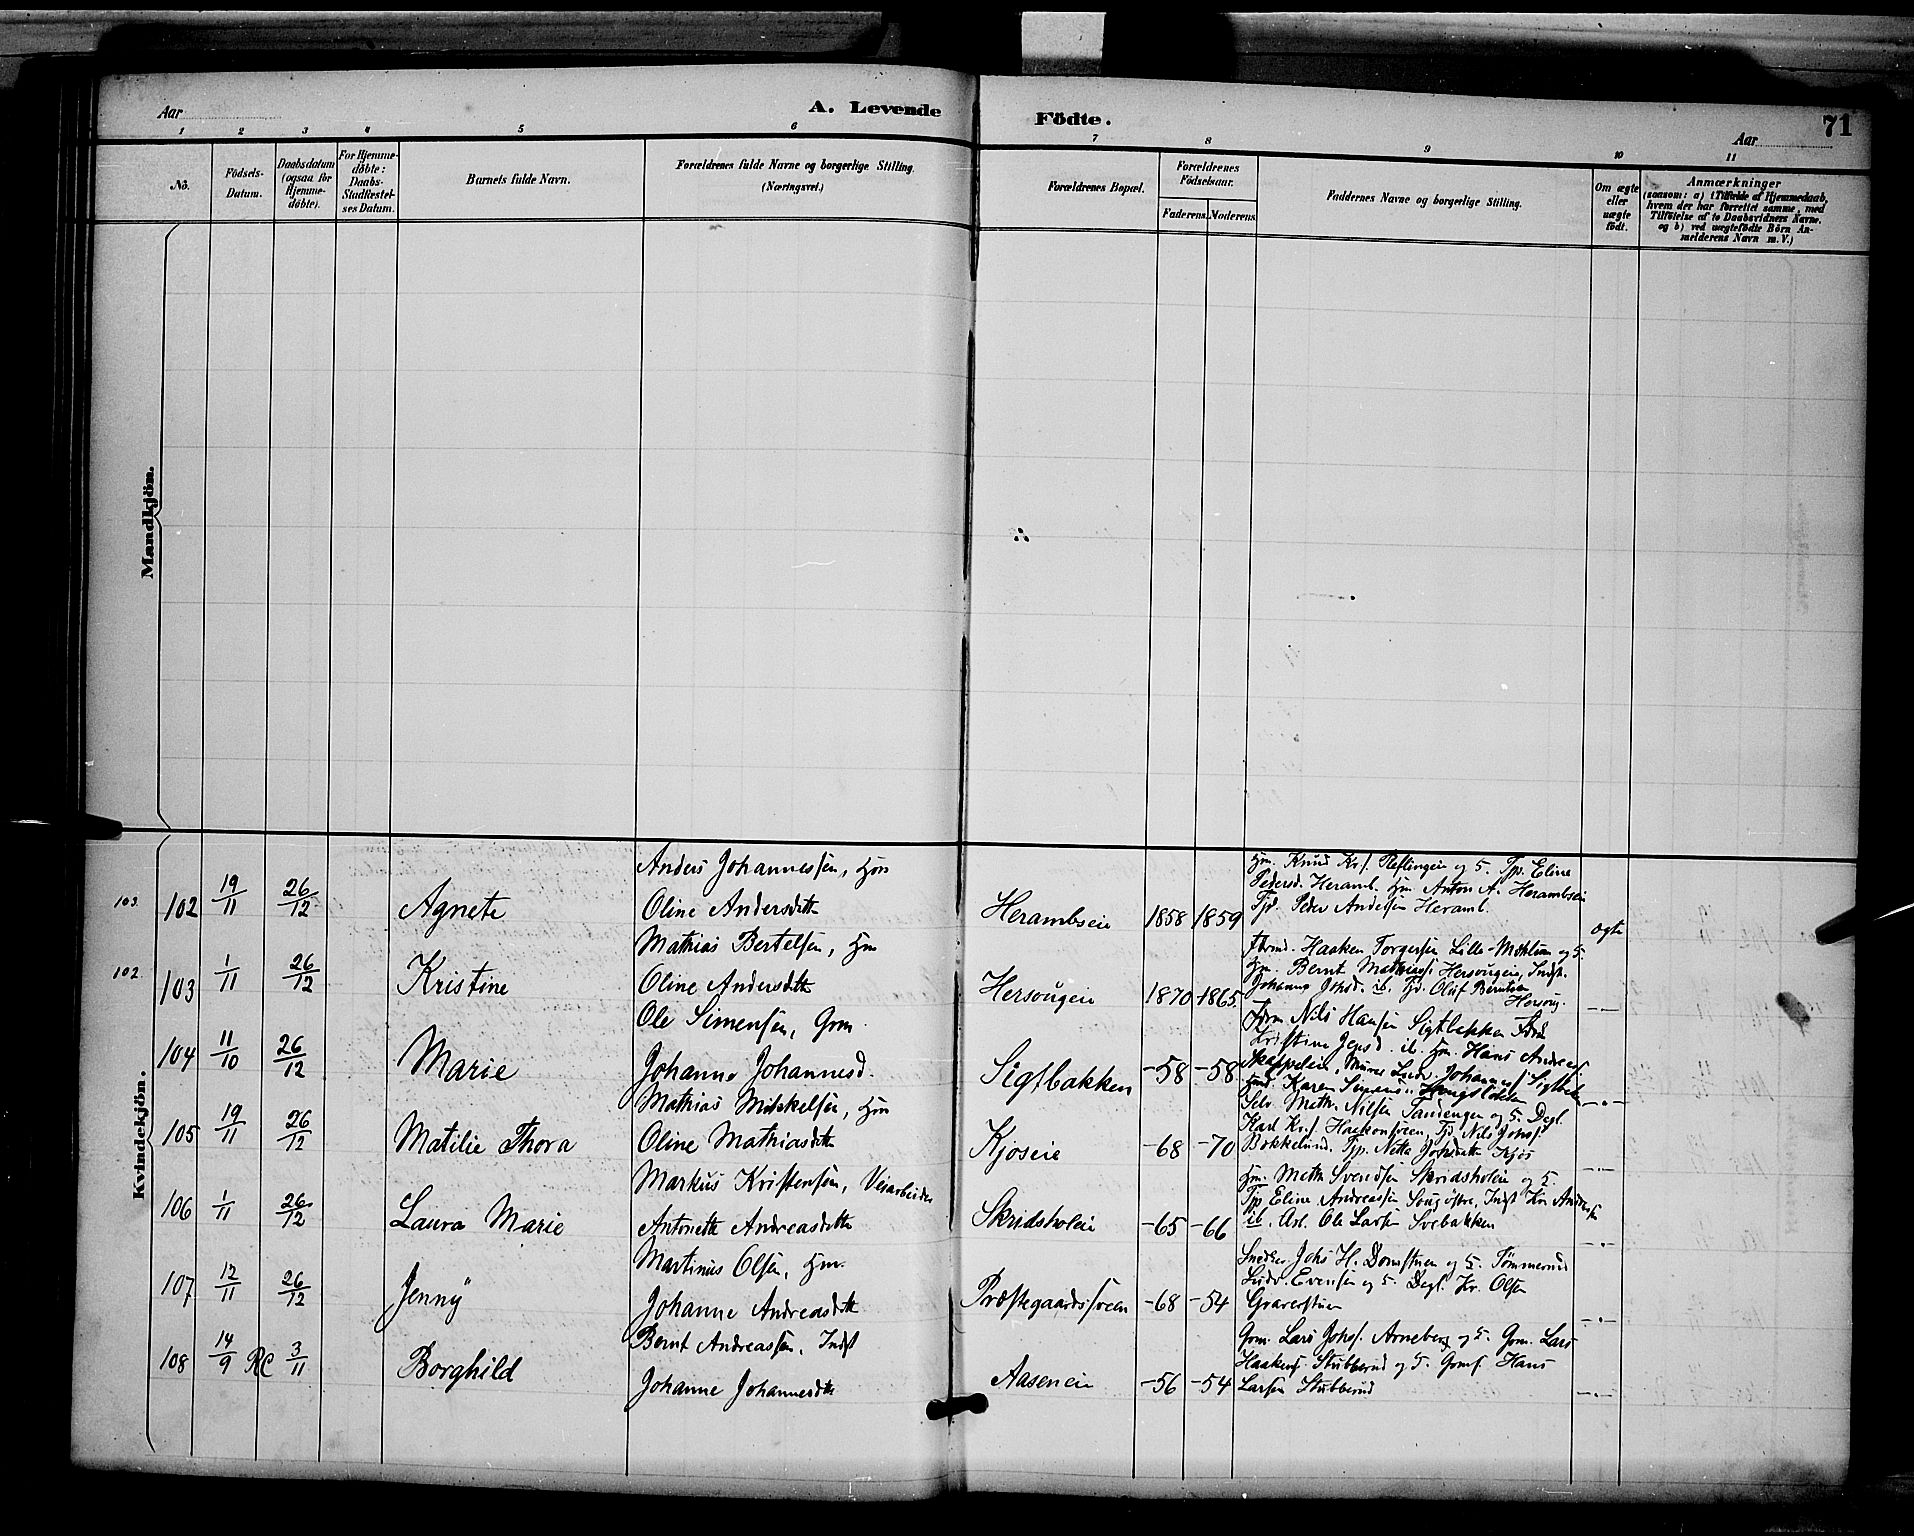 Aar
A. Levende
Födte.
Aar
71
1 2 3 4 5 6 7 8 9 10 11
Nō.
Födsels-
Datum.
Daabsdatum
(ogsaa for
Hjemme-
döbte).
For Hjemme-
döbte:
Daabs-
Stadfæstel-
ses Datum.
Barnets fulde Navn.
Forældrenes fulde Navne og borgerlige Stilling.
(Næringsvei.)
Forældrenes Bopæl.
Forældrenes
Födselsaar.
Faderens. Moderens.
Faddernes Navne og borgerlige Stilling.
Om ægte
eller
uægte
födt.
Anmærkninger
(saasom: a) i Tilfælde af Hjemmedaab,
hvem der har forrettet samme, med
Tilföielse af to Daabsvidners Navne.
og b) ved uægtefödte Börn An-
melderens Navn m. V.)
Mandkjön.
Kvindekjön.
103. 102 19/11 26/12 Agnete
Anders Johannessen, Hm
Oline Andersdtt
Herambseie 1858 1859
Hm. Knud Kr.s. Pleslingeie og H. Tjp. Eline
Pedersd. Heramb. Hm Anton A. Herambseie
Tjd. Peder Andersen Heramb.
ægte
102. 103 1/11 26/12 Kristine
Mathias Bertelsen, Hm
Oline Andersdtt
Hersougeie 1870 1865
Haaken Torgersen Lille-Mæhlum og H.
Hm. Bernt Mathiass. Hersougeie, Indst.
Johanna ib. Tjd. Oluf Berntsen
Hersoug.
-"-
104 11/10 26/12 Marie
Ole Simensen, Grm.
Johanne Johannesd.
Sigtbakken -58 -58
Nils Hansen Sigtbakken
Kristine Jensd. ib. Hm. Hans Andreas.
Johanness. Sigtbak
Karen
-"-
105 19/11 26/12 Matilie Thora
Mathias Mikkelsen, Hm
Oline Mathiasdtt
Kjoseie -68 -70
Selv. Math. Nilsen Tandengen og H. Degl.
Karl Kr.s Haakonsveen, Tjd. Nils Jons.
Bokkelund. Tjp. Netta Kjos
-"-
106 1/11 26/12 Laura Marie
Markus Kristensen, Veiarbeider
Antonette Andreasdtt
Skridsholeie -65 -66
Hm. Math. Svendsen Skridsholeie og H.
Tjp Eline Andreassen Soug østre, Indst Kr. Anders
ib. Arb. Ole Larsen Svebakken
-"-
107 12/11 26/12 Jenny
Martinus Olsen, Hm.
Johanne Andreasdtt
Præstegaardssveen -68 -54
Snedker Johs H. Domstuen og H. Tømmermd
Ludv. Evensen og H. Degl. Kr. Olsen
Graverstuen
-"-
108 14/9 RC 3/11 Borghild
Bernt Andreassen, Indst
Johanne Johannesdtt
Aaseneie -56 -54
Grm. Lars Johs. Arneberg og H. Grm. Lars
Haakens. Stubberud og H. Grms. Hans
Larsen Stubberud
-"-